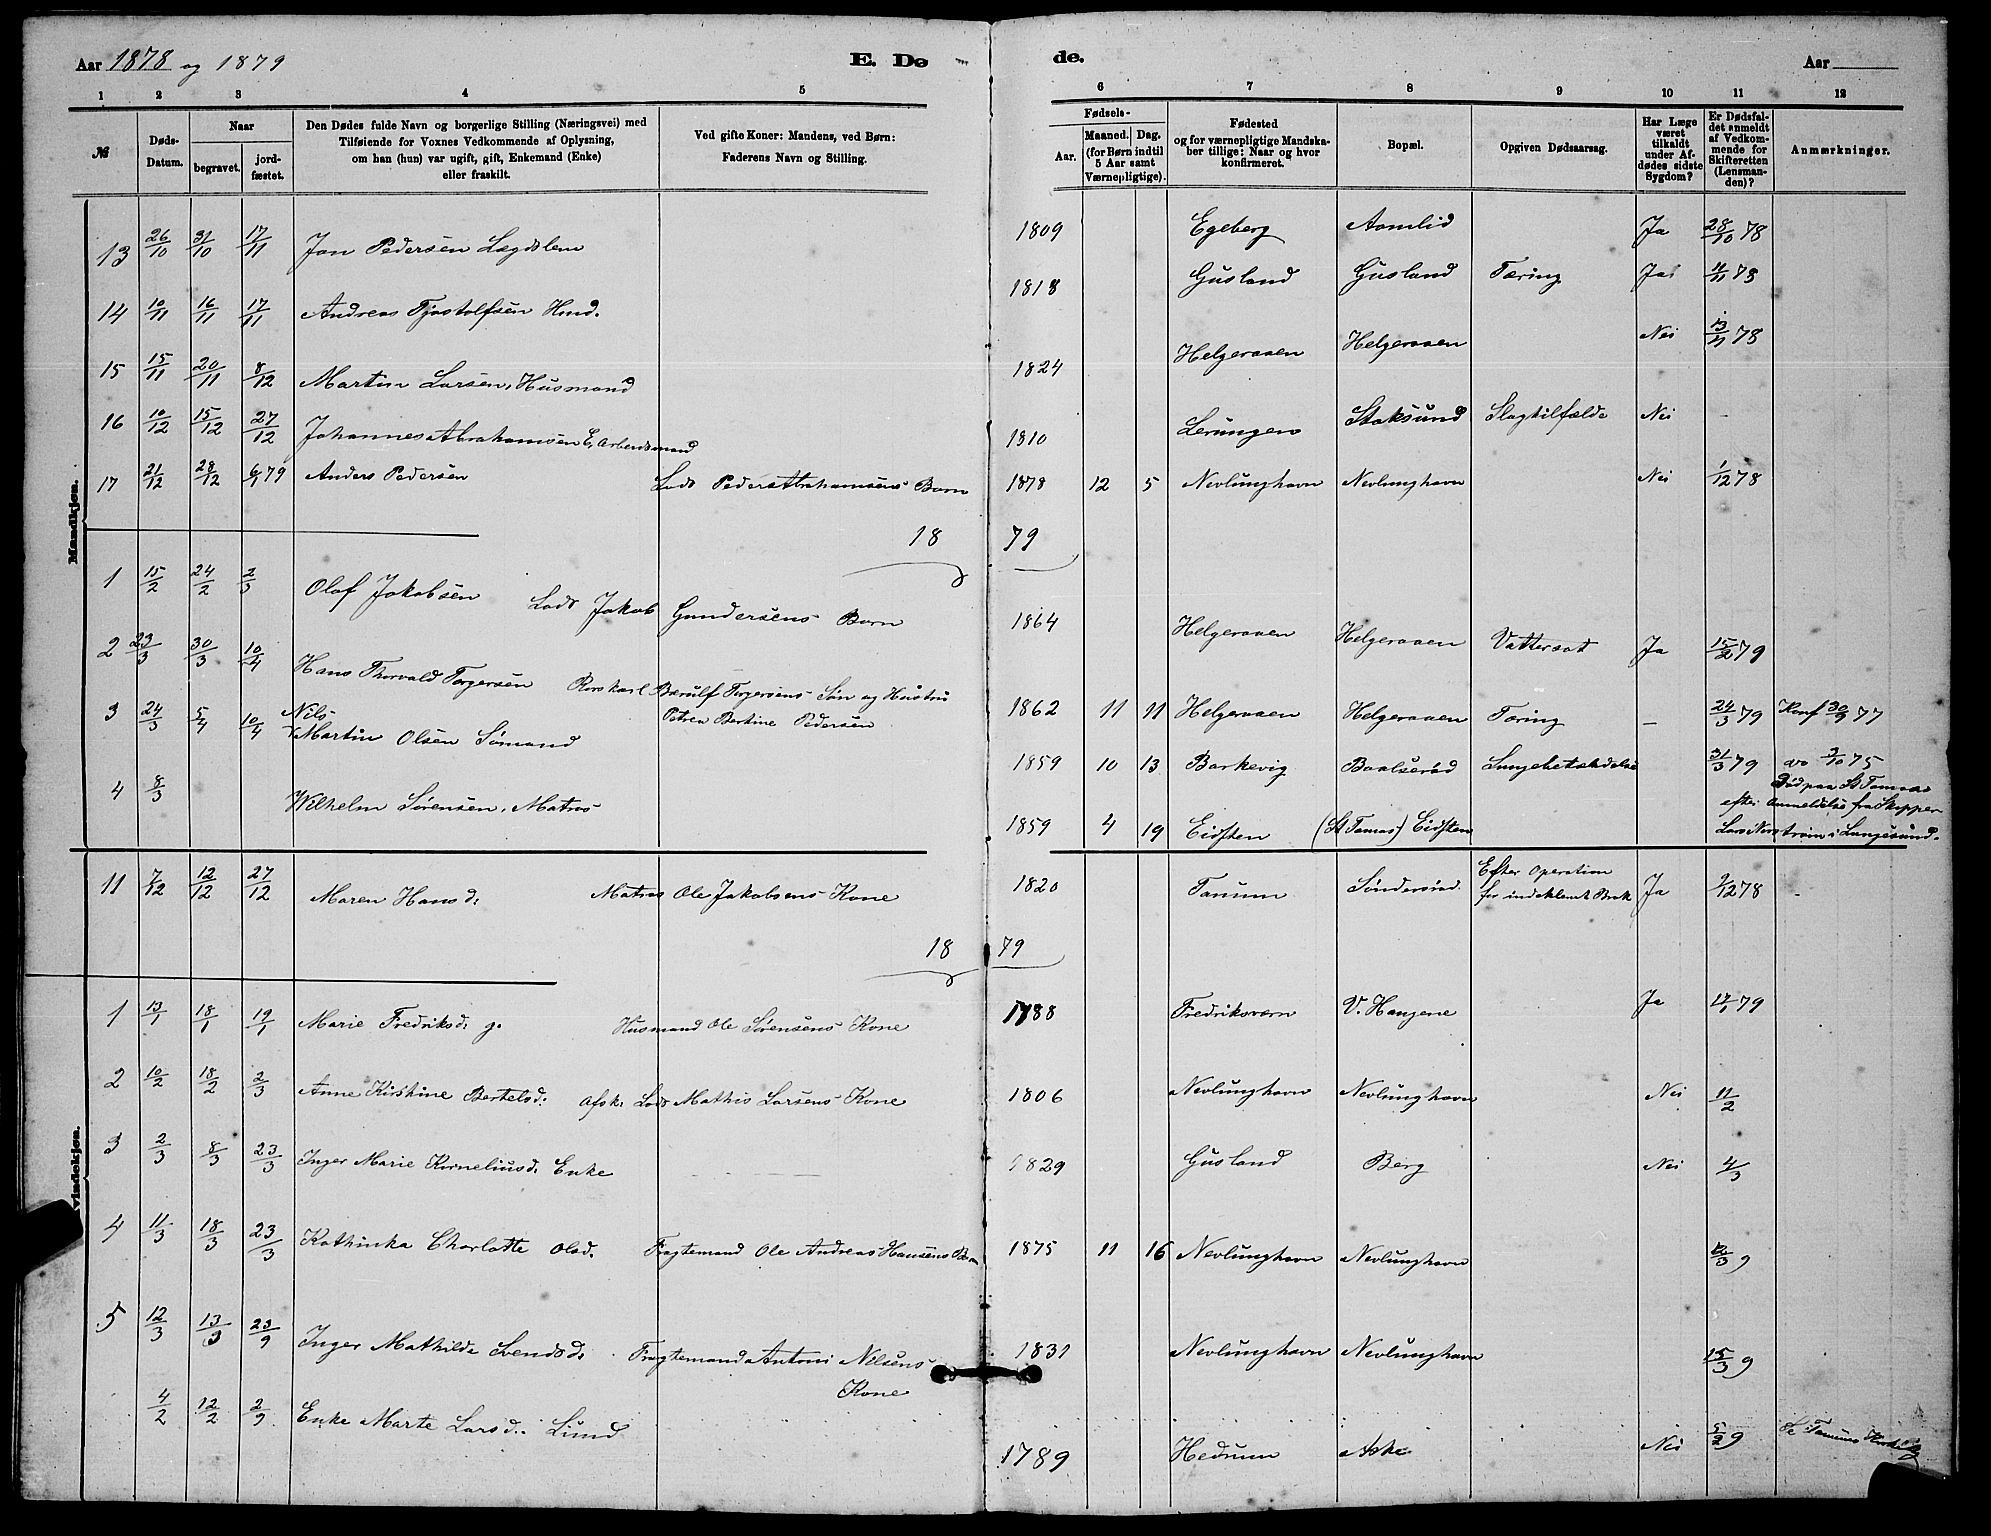 Aar 1878 og 1879 E. Dø de. Aar
1 2 3 4 5 6 7 8 9 10 11 12
№
Døds-Datum.
Naar
begravet.
jordfæstet.
Den Dødes fulde Navn og borgerlige Stilling (Næringsvei) med
Tilføiende for Voxnes Vedkommende af Oplysning,
om han (hun) var ugift, gift, Enkemand (Enke)
eller fraskilt.
Ved gifte Koner: Mandens, ved Børn:
Faderens Navn og Stilling.
Fødsels-
Aar.
Maaned. Dag.
(for Børn indtil
5 Aar samt
Værnepligtige).
Fødested
og for værnepligtige Mandska-
ber tillige: Naar og hvor
konfirmeret.
Bopæl.
Opgiven Dødsaarsag.
Har Læge
været
tilkaldt
under Af-
dødes sidste
Sygdom?
Er Dødsfal-
det anmeldt
af Vedkom-
mende for
Skifteretten
(Lensman-
den)?
Anmærkninger.
Mandkjøn.
13 26/10 31/10 17/11 Jon Pedersen Lægdslem 1809 Egeberg Aamlid Ja 28/10 78
14 10/11 16/11 17/11 Andreas Tjøstolfsen Hmd. 1818 Gusland Gusland Tæring Ja 11/11 78
15 15/11 20/11 8/12 Martin Larsen, Husmand 1824 Helgeraaen Helgeraaen Nei 78
16 10/12 15/12 27/12 Johannes Abrahamsen E, Arbeidsmand 1810 Lerungen Staksund Slagtilfælde Nei -
17 21/12 28/12 6/1 79 Anders Pedersen Lods Peder Abrahamsens Barn 1878 12 5 Nevlunghavn Nevlunghavn Nei 1/12 78
18 79
1 15/2 24/2 2/3 Olaf Jakobsen Lods Jakob Gundersens Barn 1864 Helgeraaen Helgeraaen Vattersot Ja 15/2 79
2 23/3 30/3 10/4 Hans Thorvald Torgersen Rorskarl Bærulf Torgersens Søn og Hustru
Petrea Bertine Pedersen 1862 11 11 Helgeraaen Helgeraaen Tæring — 24/3 79 Konf 30/9 77
3 24/3 5/4 10/4 Nils
Martin Olsen Sømand 1859 10 13 Barkevig Baalserød Lungebetændelse 31/3 79 do 3/10 75
4 8/3 Wilhelm Sørensen, Matros 1859 4 19 Eidsten (St Tomas) Eidsten
Død paa St Tomas
efter Anmeldelse fra Skipper
Lars i Langesund.
11 7/12 12/12 27/12 Maren Hansd. Matros Ole Jakobsens Kone 1820 Tanum Søndersrød Efter Operation
for indeklemt Brok Ja 9/12 78 -
18 79
Kvindekjøn.
1 13/1 18/1 19/1 Marie Fredriksd. g. Husmand Ole Sørensens Kone 1788 Fredriksværn V. Haugene Ja 79
2 10/2 18/2 2/3 Anne Kirstine Bertelsd. Afsk. Lods Mathis Larsens Kone 1806 Nevlunghavn Nevlunghavn Nei 11/2
3 2/3 8/3 23/3 Inger Marie Korneliusd. Enke 1829 Gusland Berg Nei 4/3
4 11/3 18/3 23/3 Kathinka Charlotte Olsd. Fragtemand Ole Andreas Hansens Barn 1875 11 16 Nevlunghavn Nevlunghavn 9
5 12/3 13/3 23/9 Inger Mathilde Svendsd. Fragtemand Antoni Nilsens
Kone 1831 Nevlunghavn Nevlunghavn 15/3 9
4/2 12/2 2/9 Enke Marte Larsd. Lund 1789 Hedrum Aske Nei 5/2 9 Se Tanums